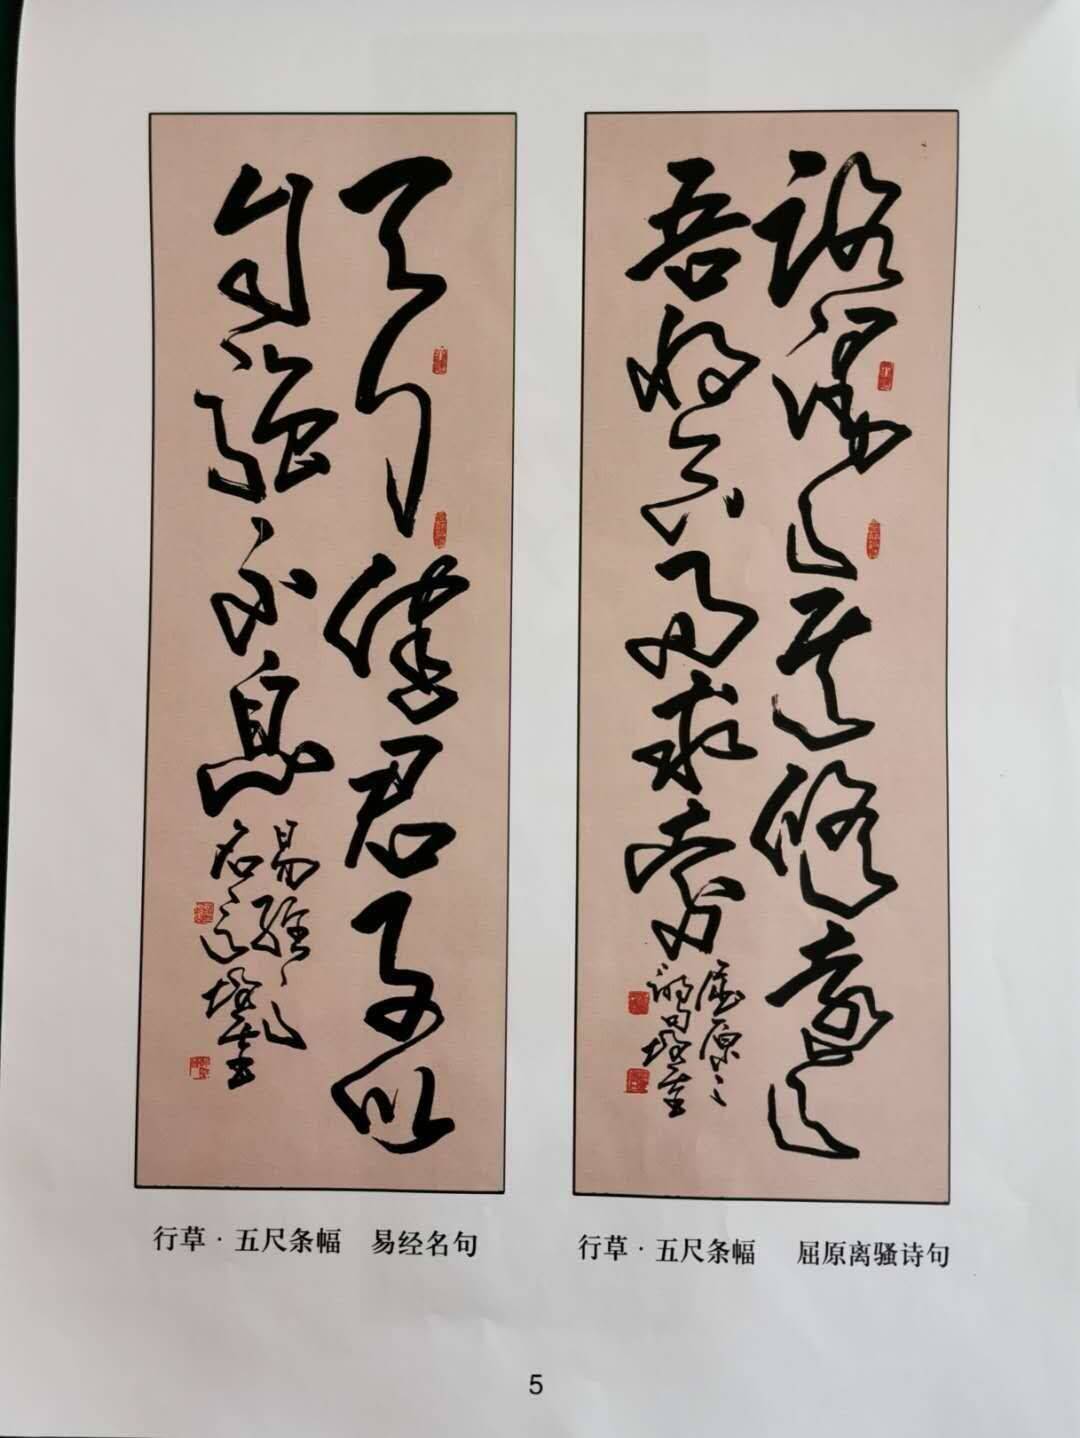 天行健君子以
自强不息
易经之
名言
行草·五尺条幅 易经名句
路漫漫其修远兮
吾将上下而求索
屈原之
诗句
行草·五尺条幅 屈原离骚诗句
5